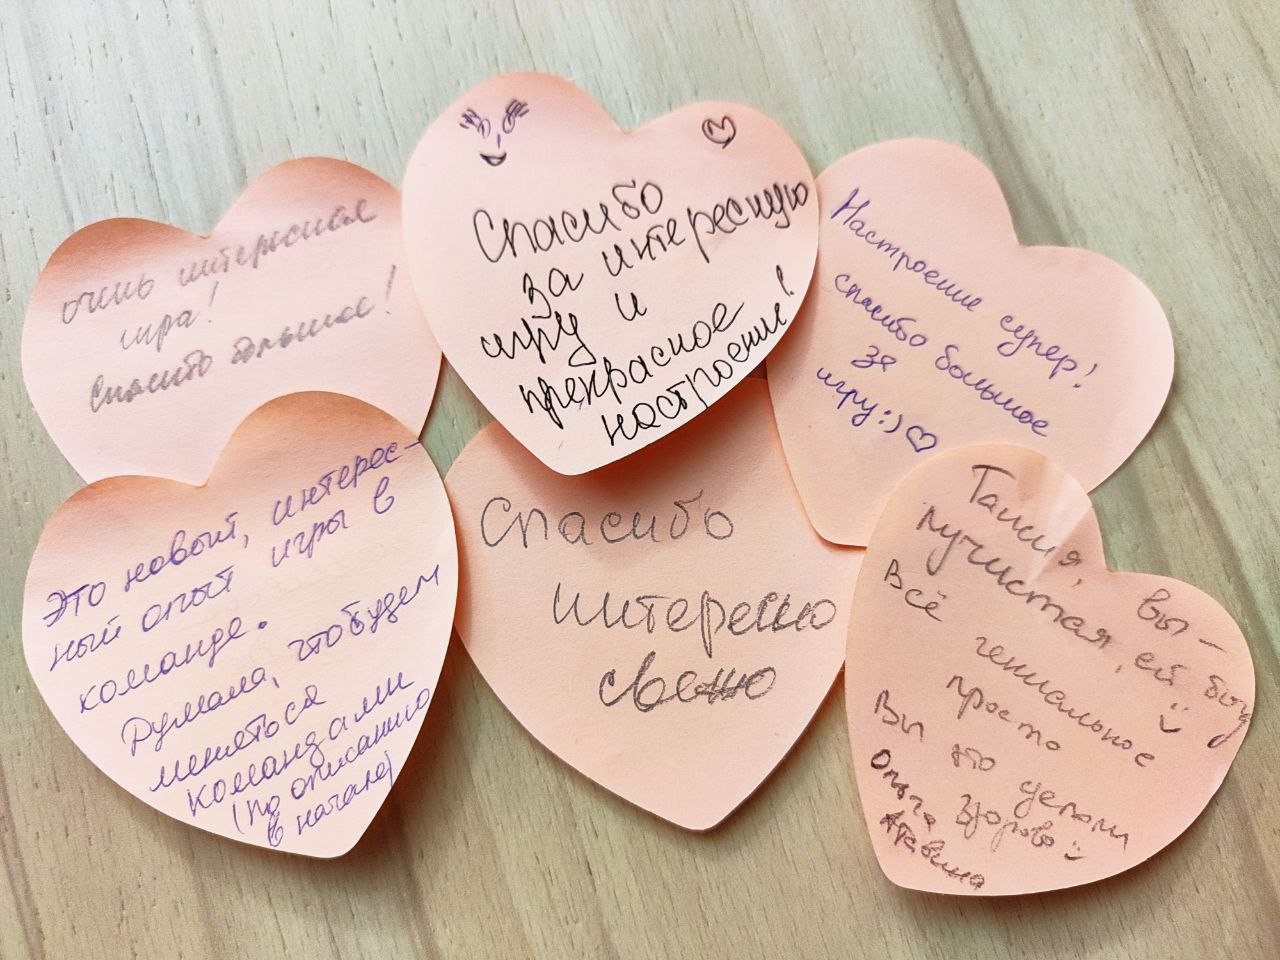 очень интересная
игра!
Спасибо большое!
Спасибо
за интересную
игру и
прекрасное
настроение!
Настроение супер!
спасибо большое
за
игру:)
Это новый, интерес-
ный опыт игры в
команде.
Думала, что будем
меняться
командами
(по описанию
в начале)
Спасибо
интересно
свежо
Таисия, вы-
лучистая, ей богу
Всё гениальное
просто
Вы это делали
здорово
Ольга